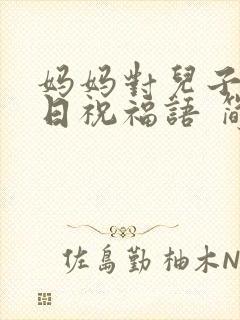 妈妈對兒子
日祝福語 簡
佐島勤 柚木N